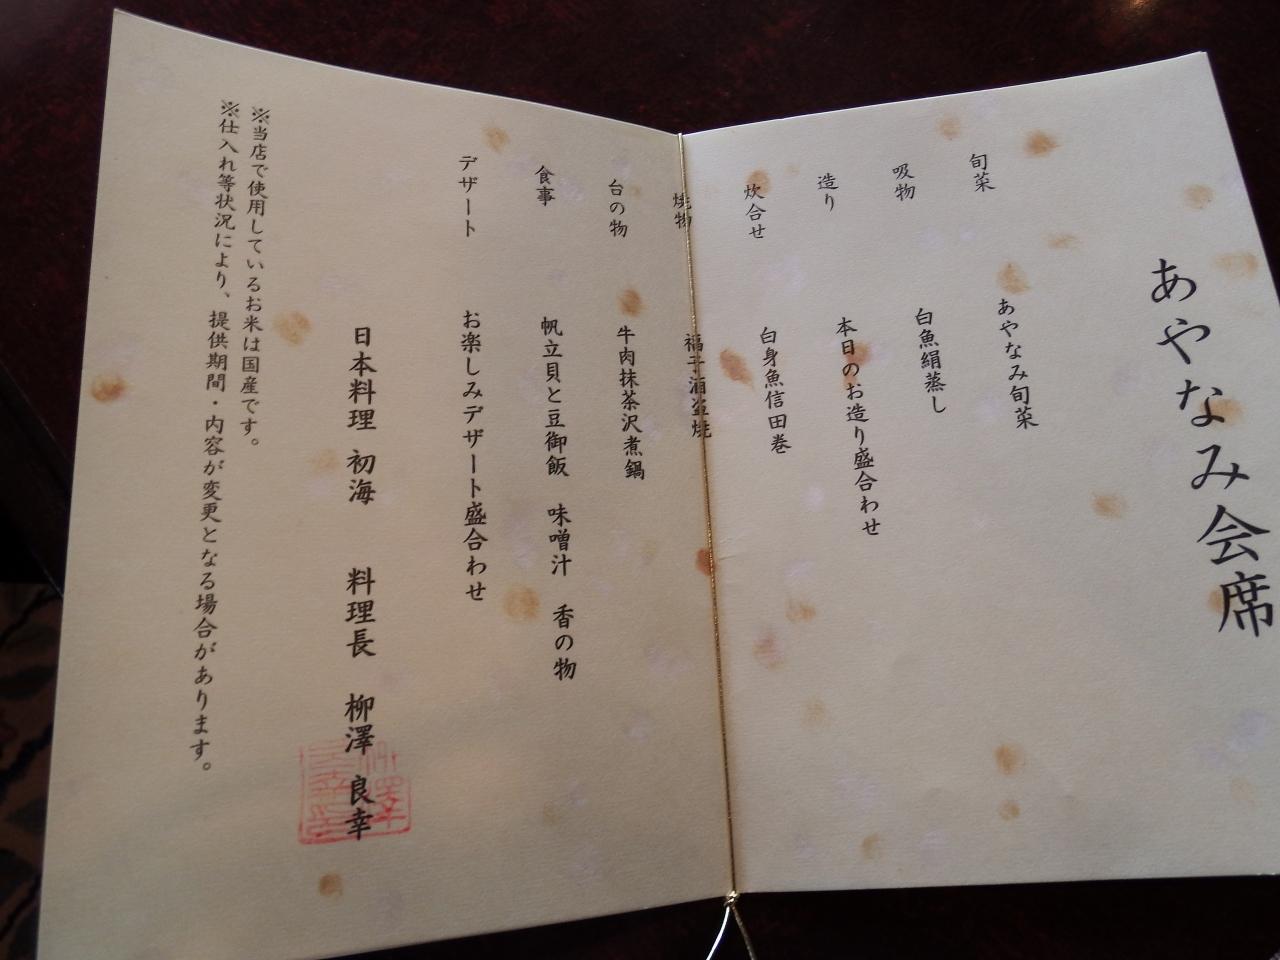 あやなみ会席
旬菜 あやなみ旬菜
吸物 白魚絹蒸し
造り 本日のお造り盛合わせ
炊合せ 白身魚信田巻
焼物 福子酒盗焼
台の物 牛肉抹茶沢煮鍋
食事 帆立貝と豆御飯 味噌汁 香の物
デザート お楽しみデザート盛合わせ
日本料理 初海 料理長 柳澤 良幸
※当店で使用しているお米は国産です。
※仕入れ等状況により、提供期間・内容が変更となる場合があります。